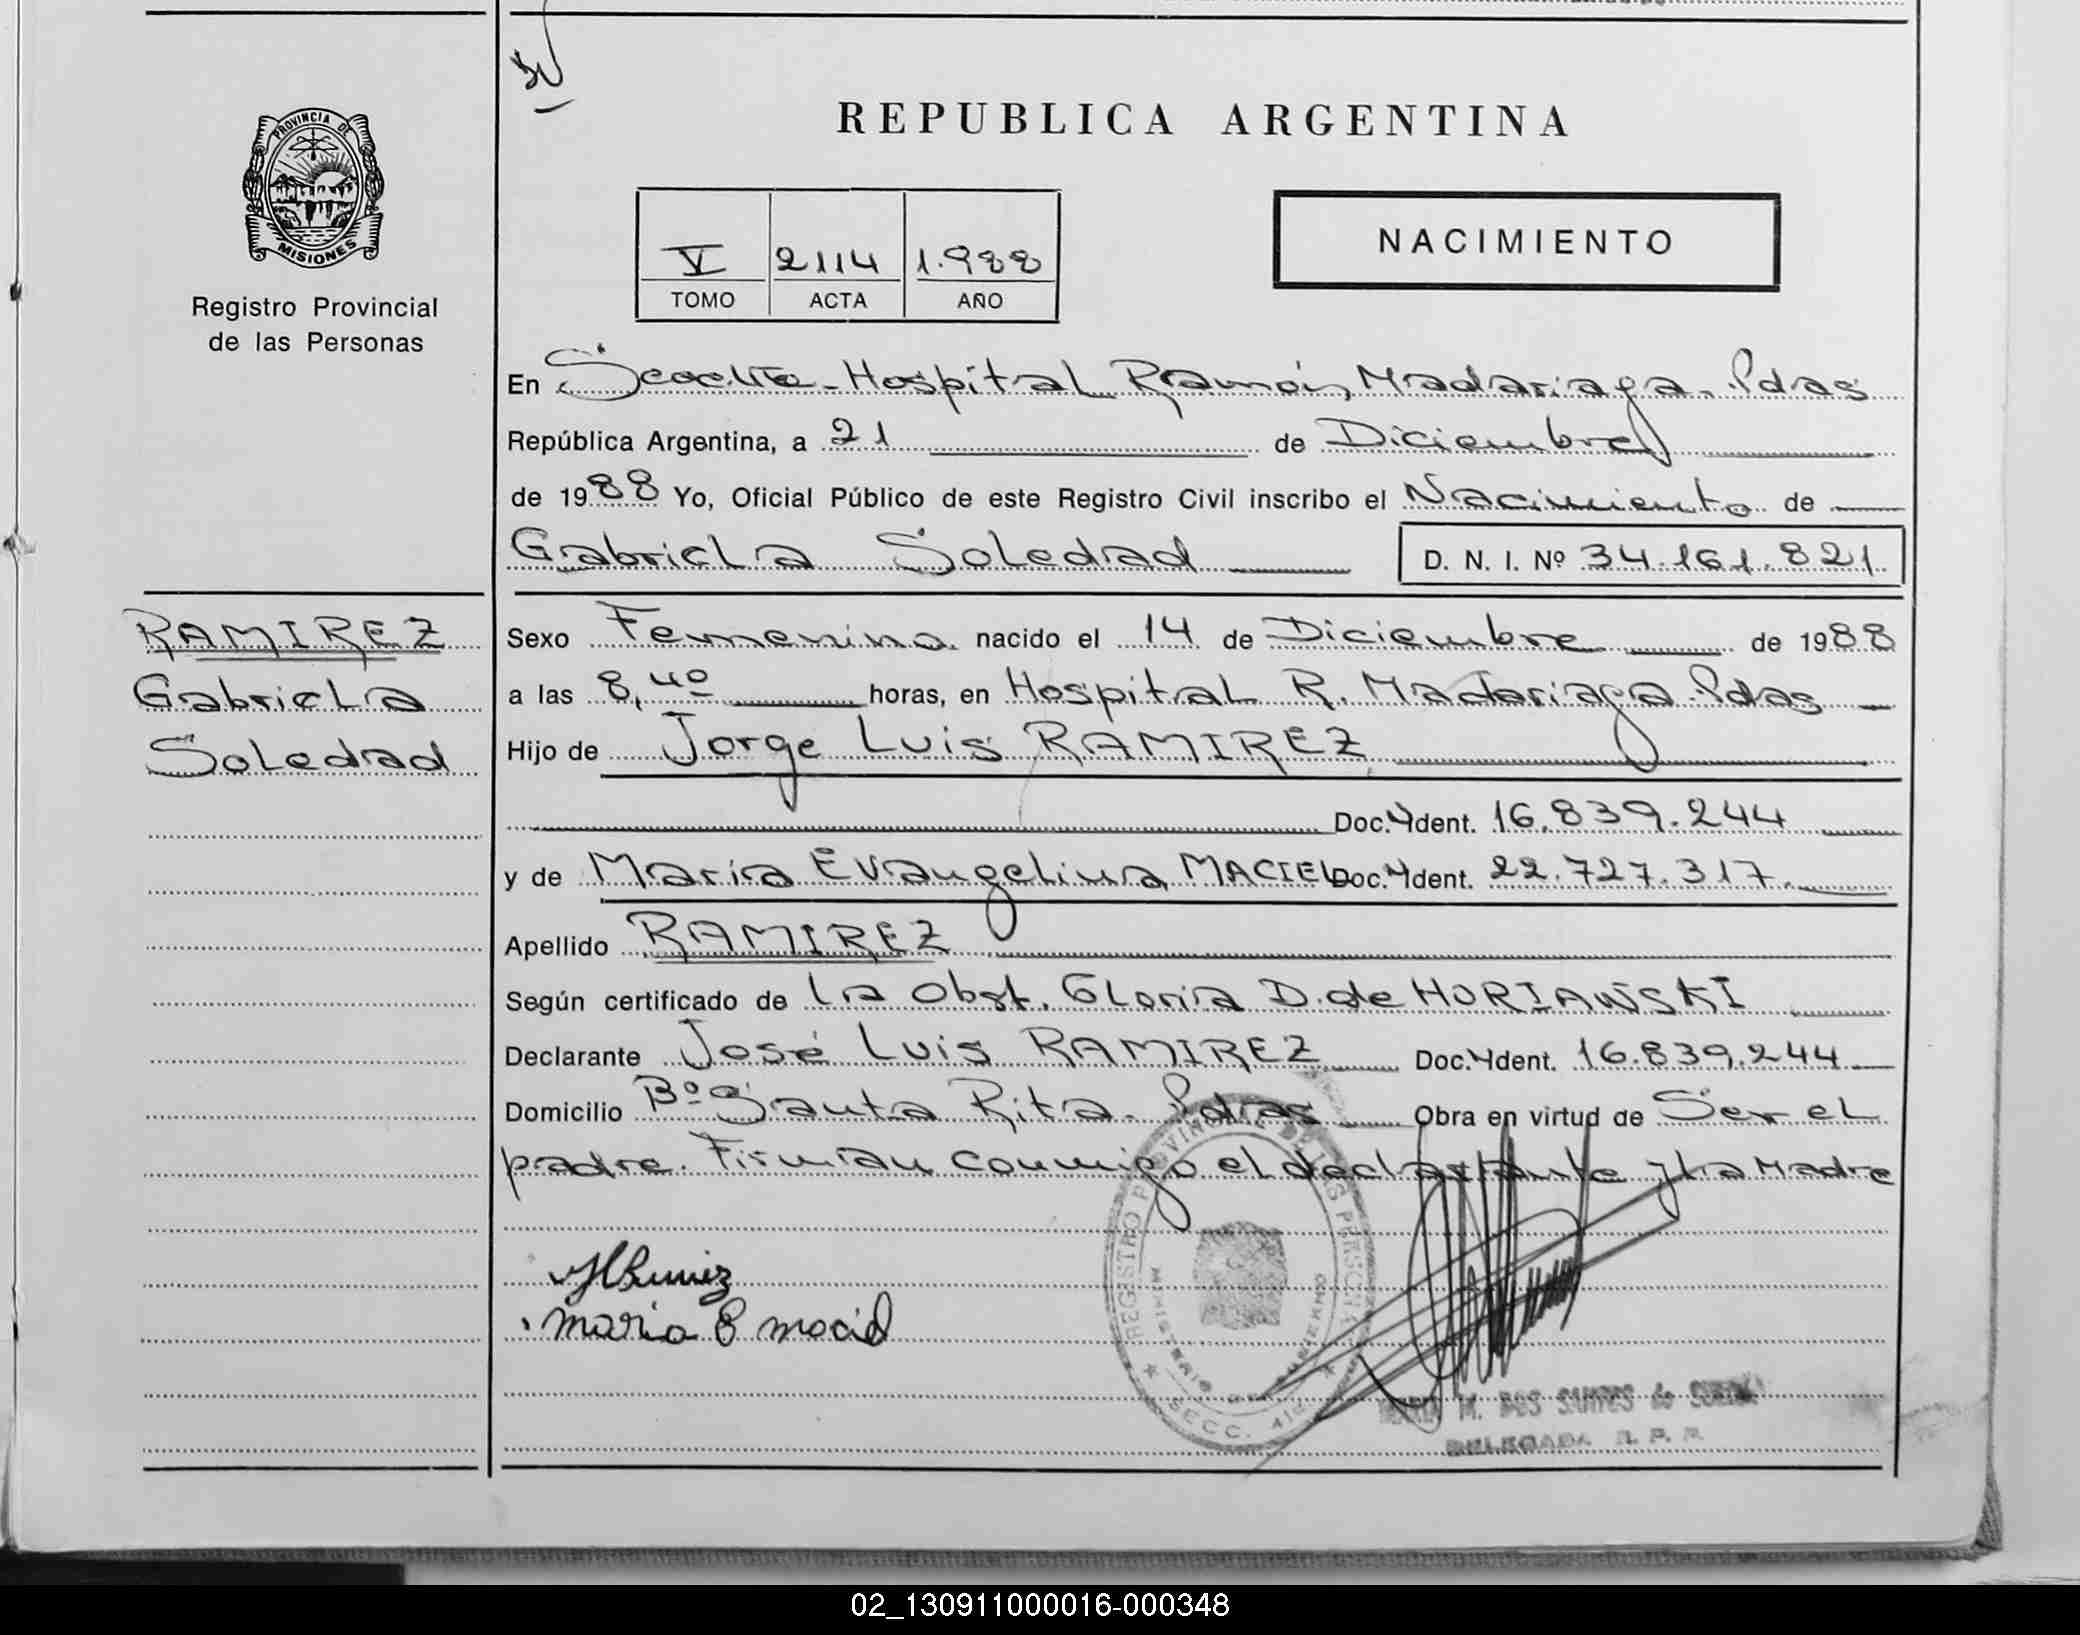 PROVINCIA DE
MISIONES
Registro Provincial
de las Personas
RAMIREZ
Gabriela
Soledad
REPUBLICA ARGENTINA
V 2114 1.988
TOMO ACTA AÑO
NACIMIENTO
En Hospital Ramón Madariaga - Pdas
República Argentina, a 21 de Diciembre
de 1988 Yo, Oficial Público de este Registro Civil inscribo el Nacimiento de
Gabriela Soledad D. N. I. Nº 34.161.821
Sexo Femenino nacido el 14 de Diciembre de 1988
a las 8,40 horas, en Hospital R. Madariaga Pdas
Hijo de Jorge Luis RAMIREZ
Doc. Ident. 16.839.244
y de María Evangelina MACIEL Doc. Ident. 22.727.317
Apellido RAMIREZ
Según certificado de la Obst. Gloria D. de HORIANSKI
Declarante José Luis RAMIREZ Doc. Ident. 16.839.244
Domicilio Bº Santa Rita - Pdas Obra en virtud de Ser el
padre. Firman conmigo el declarante y la Madre
maria E maciel
REGISTRO PROVINCIAL DE LAS PERSONAS
MINISTERIO DE GOBIERNO
SECC.
M. DOS SANTOS de
DELEGADA R. P. P.
02_130911000016-000348